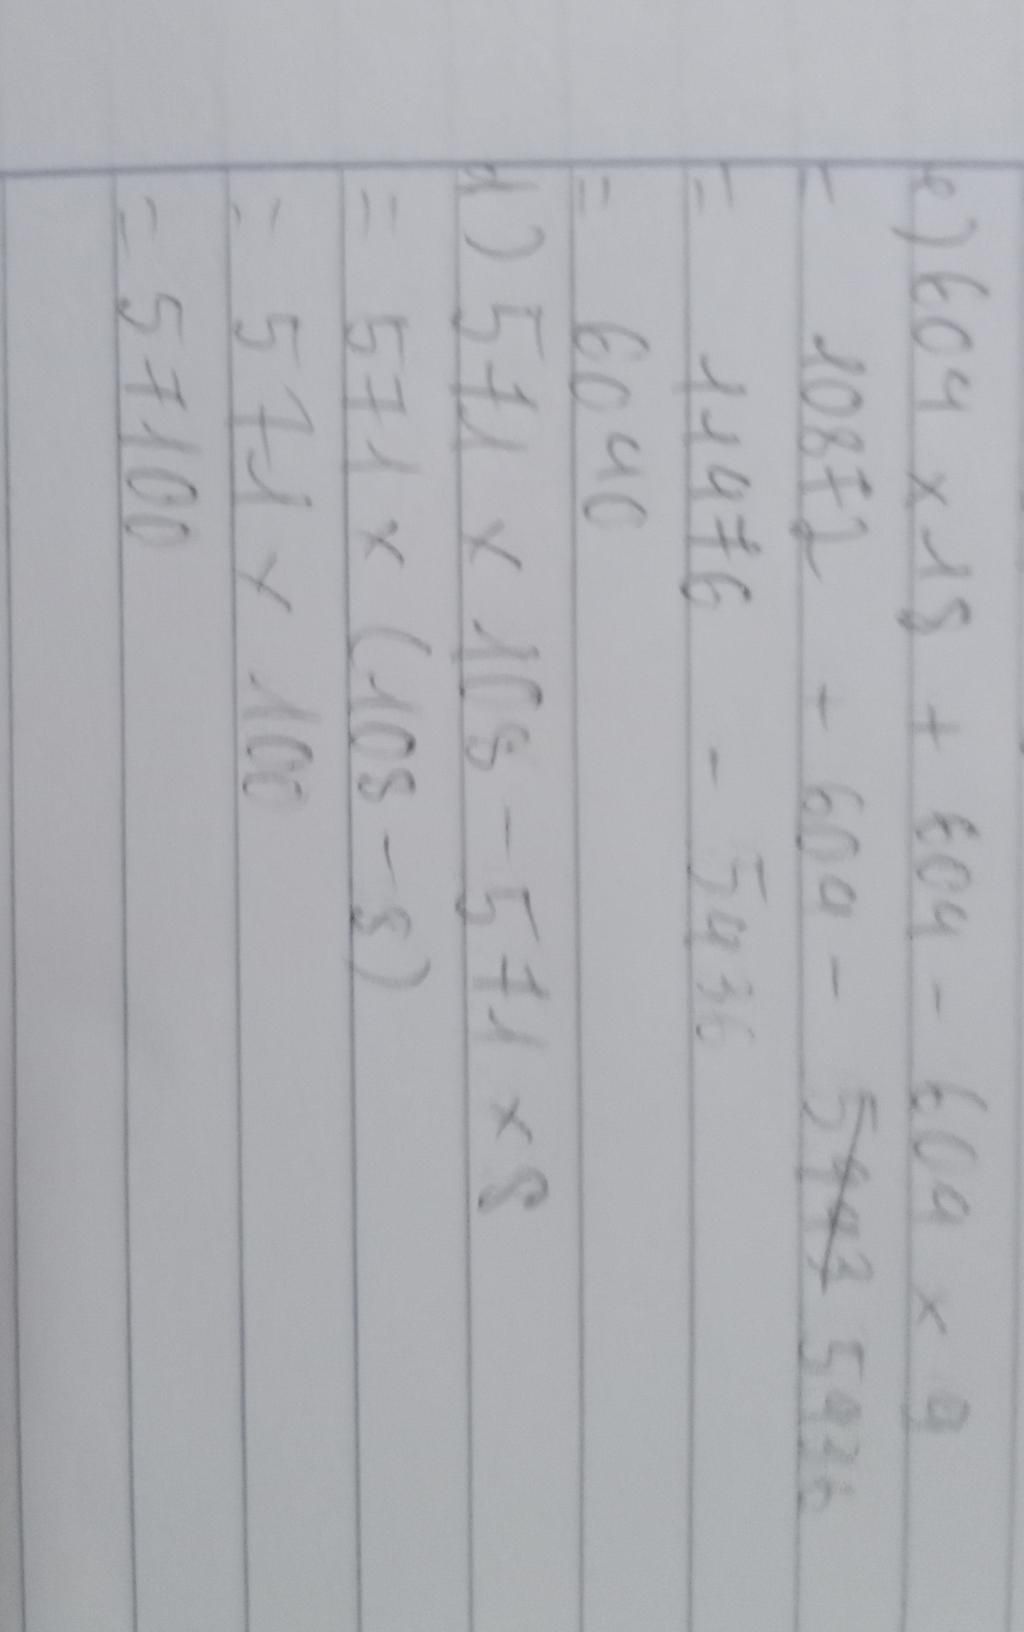 c) 604 x 18 + 604 - 604 x 9
= 10872 + 604 - 5436
= 11476 - 5436
= 6040
d) 571 x 108 - 571 x 8
= 571 x (108 - 8)
= 571 x 100
= 57100